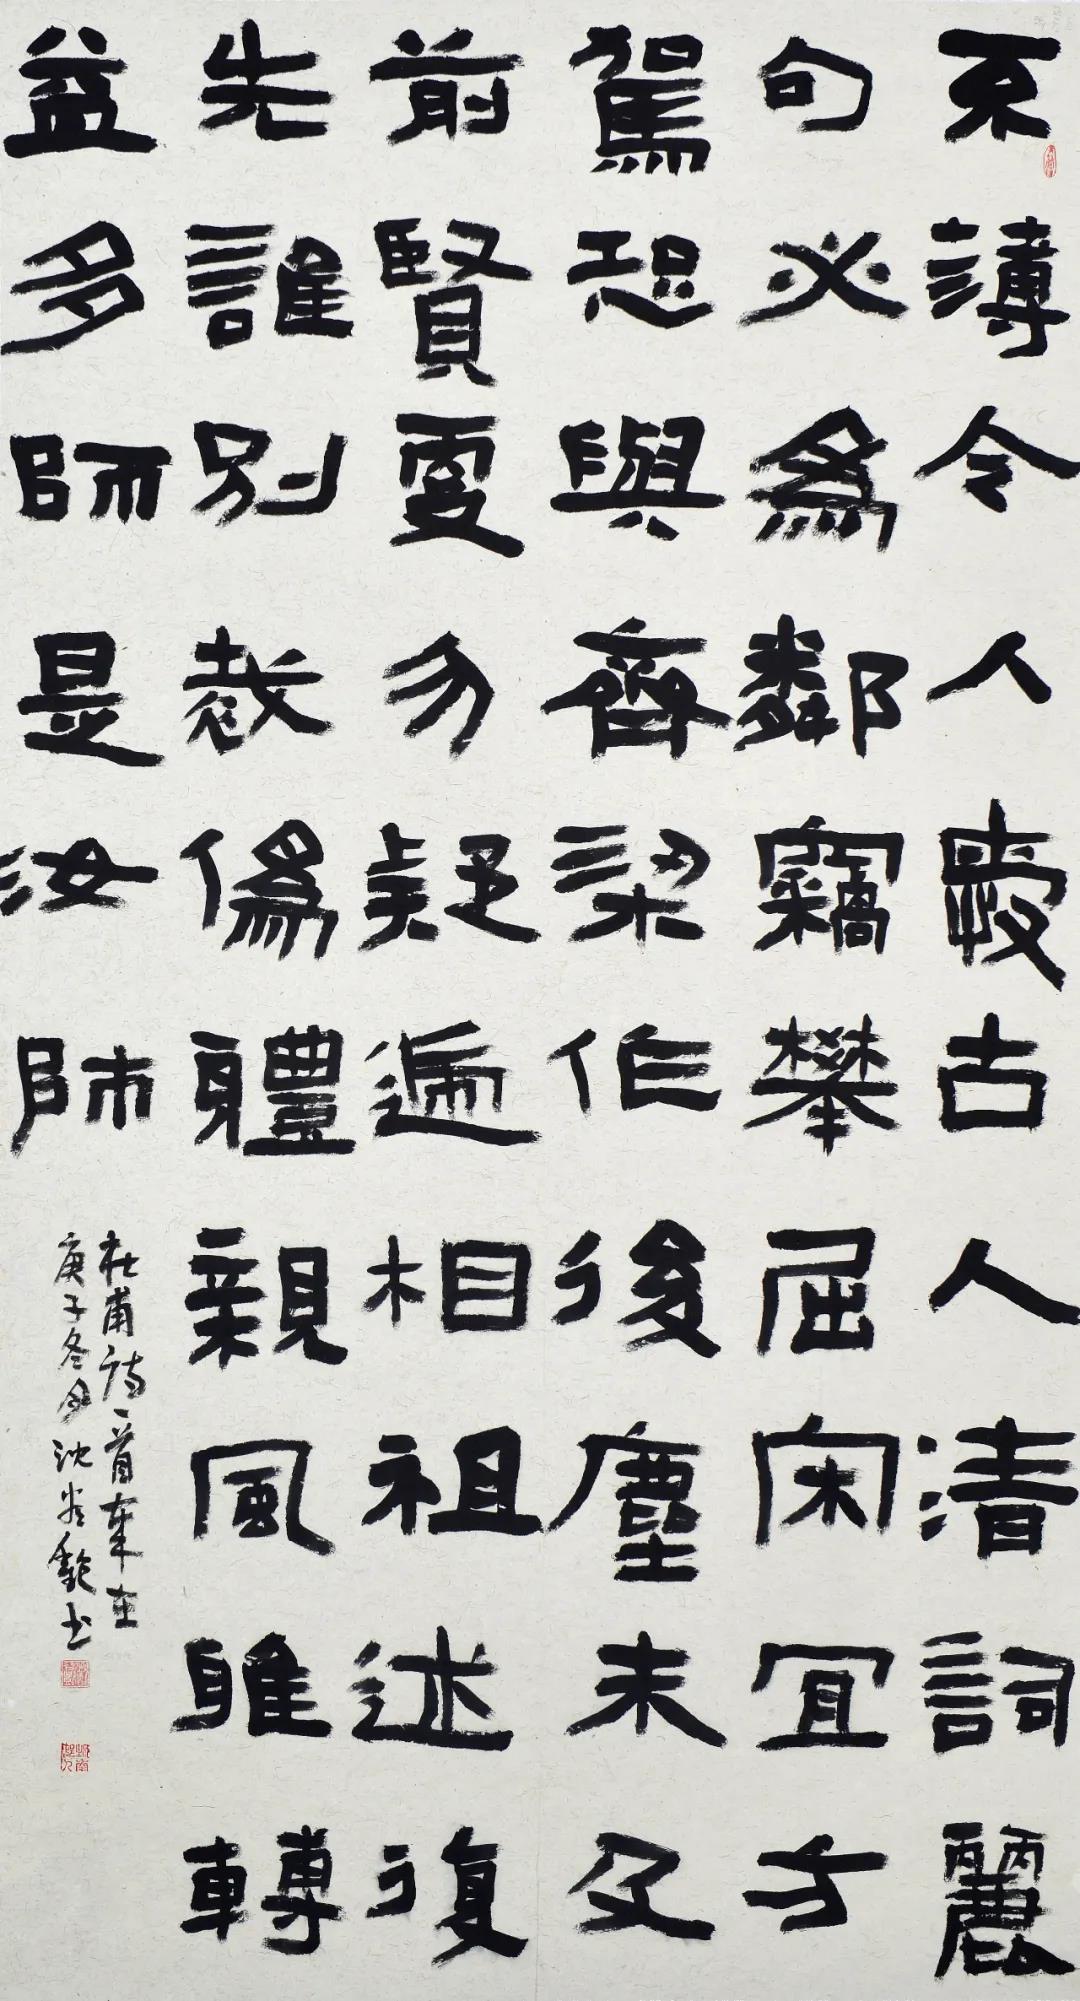 不薄今人愛古人清詞麗
句必爲鄰竊攀屈宋宜方
駕恐與齊梁作後塵未及
前賢更勿疑遞相祖述復
先誰別裁僞體親風雅轉
益多師是汝師
杜甫诗一首
庚子冬月沈书